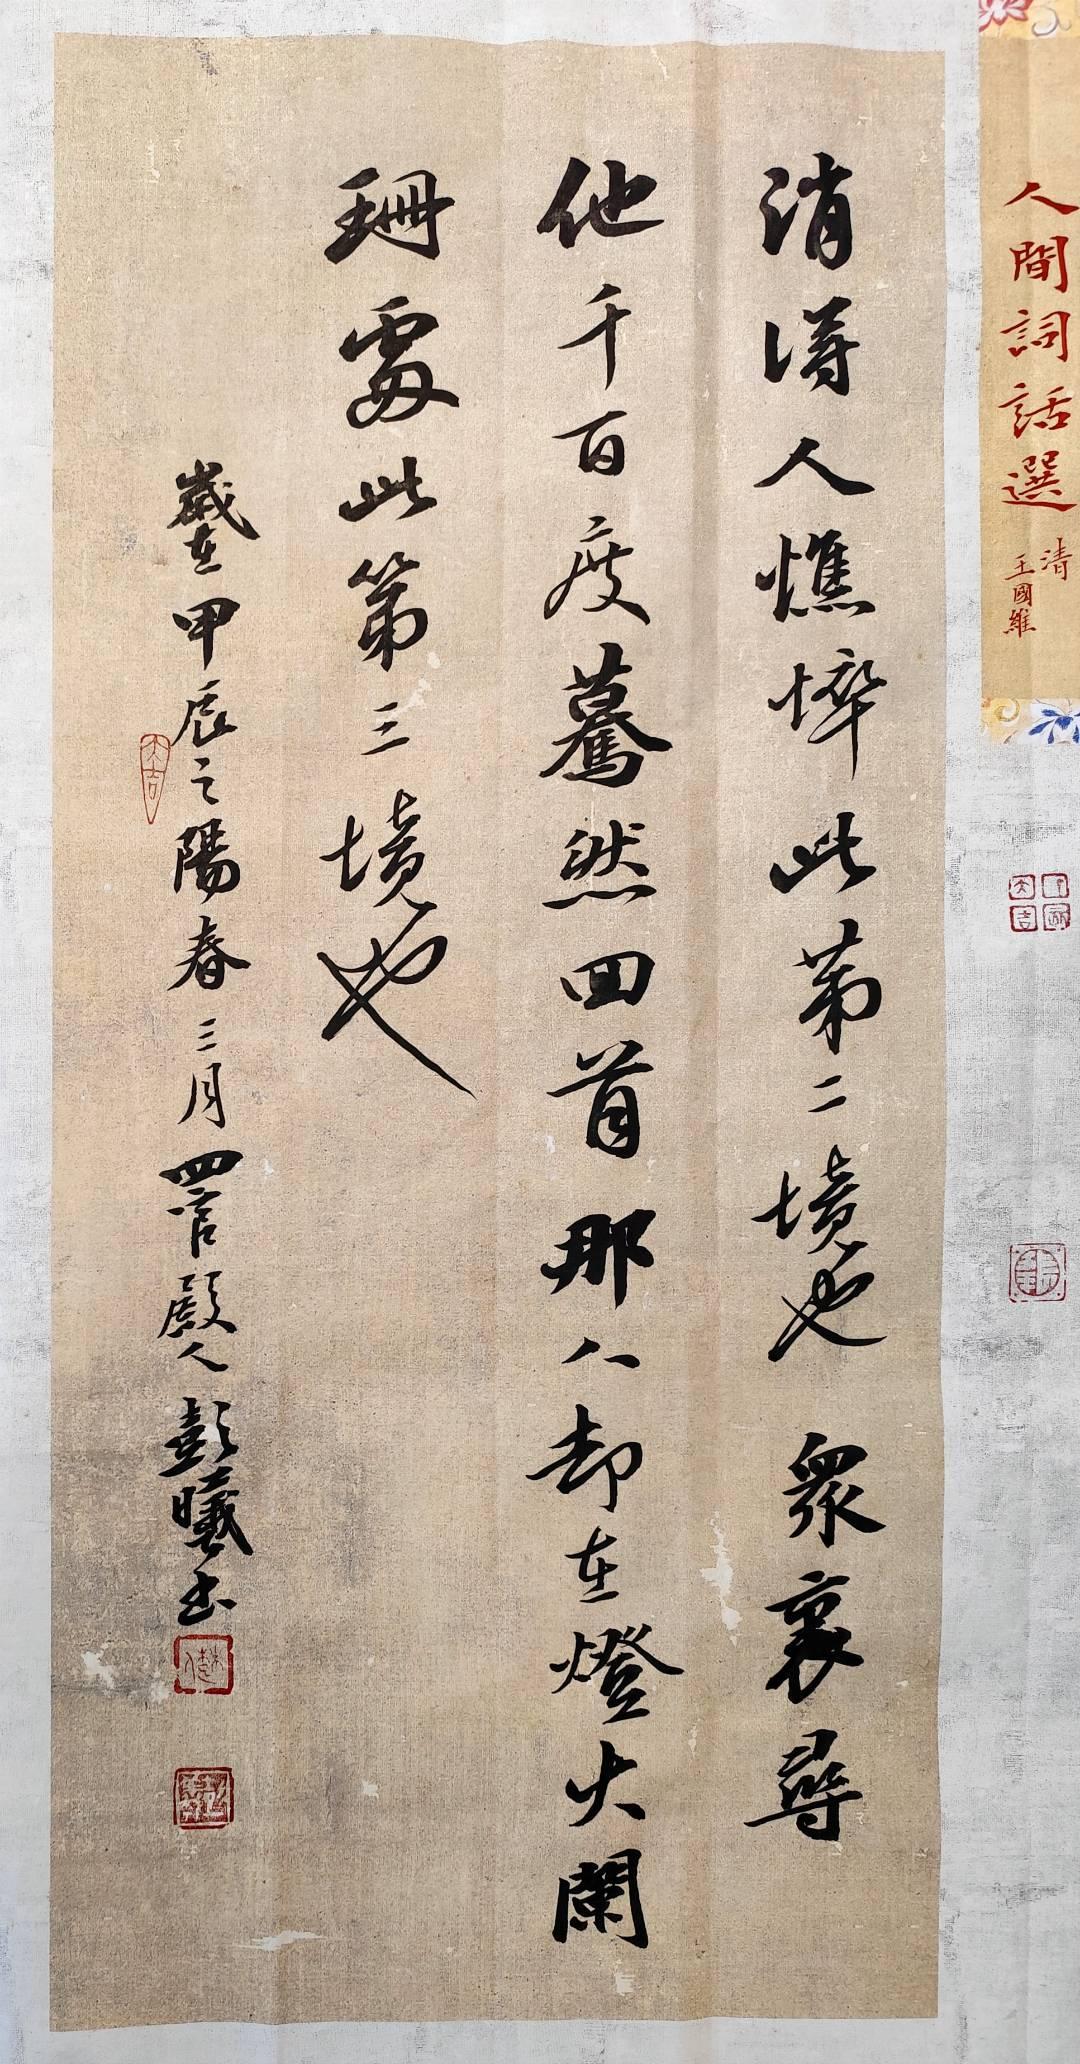 人間詞話選
清
王國維
消得人憔悴此第二境也眾裏尋
他千百度驀然回首那人却在燈火闌
珊處此第三境也
歲在甲辰之陽春三月四官殿人彭曦書
大吉
大吉